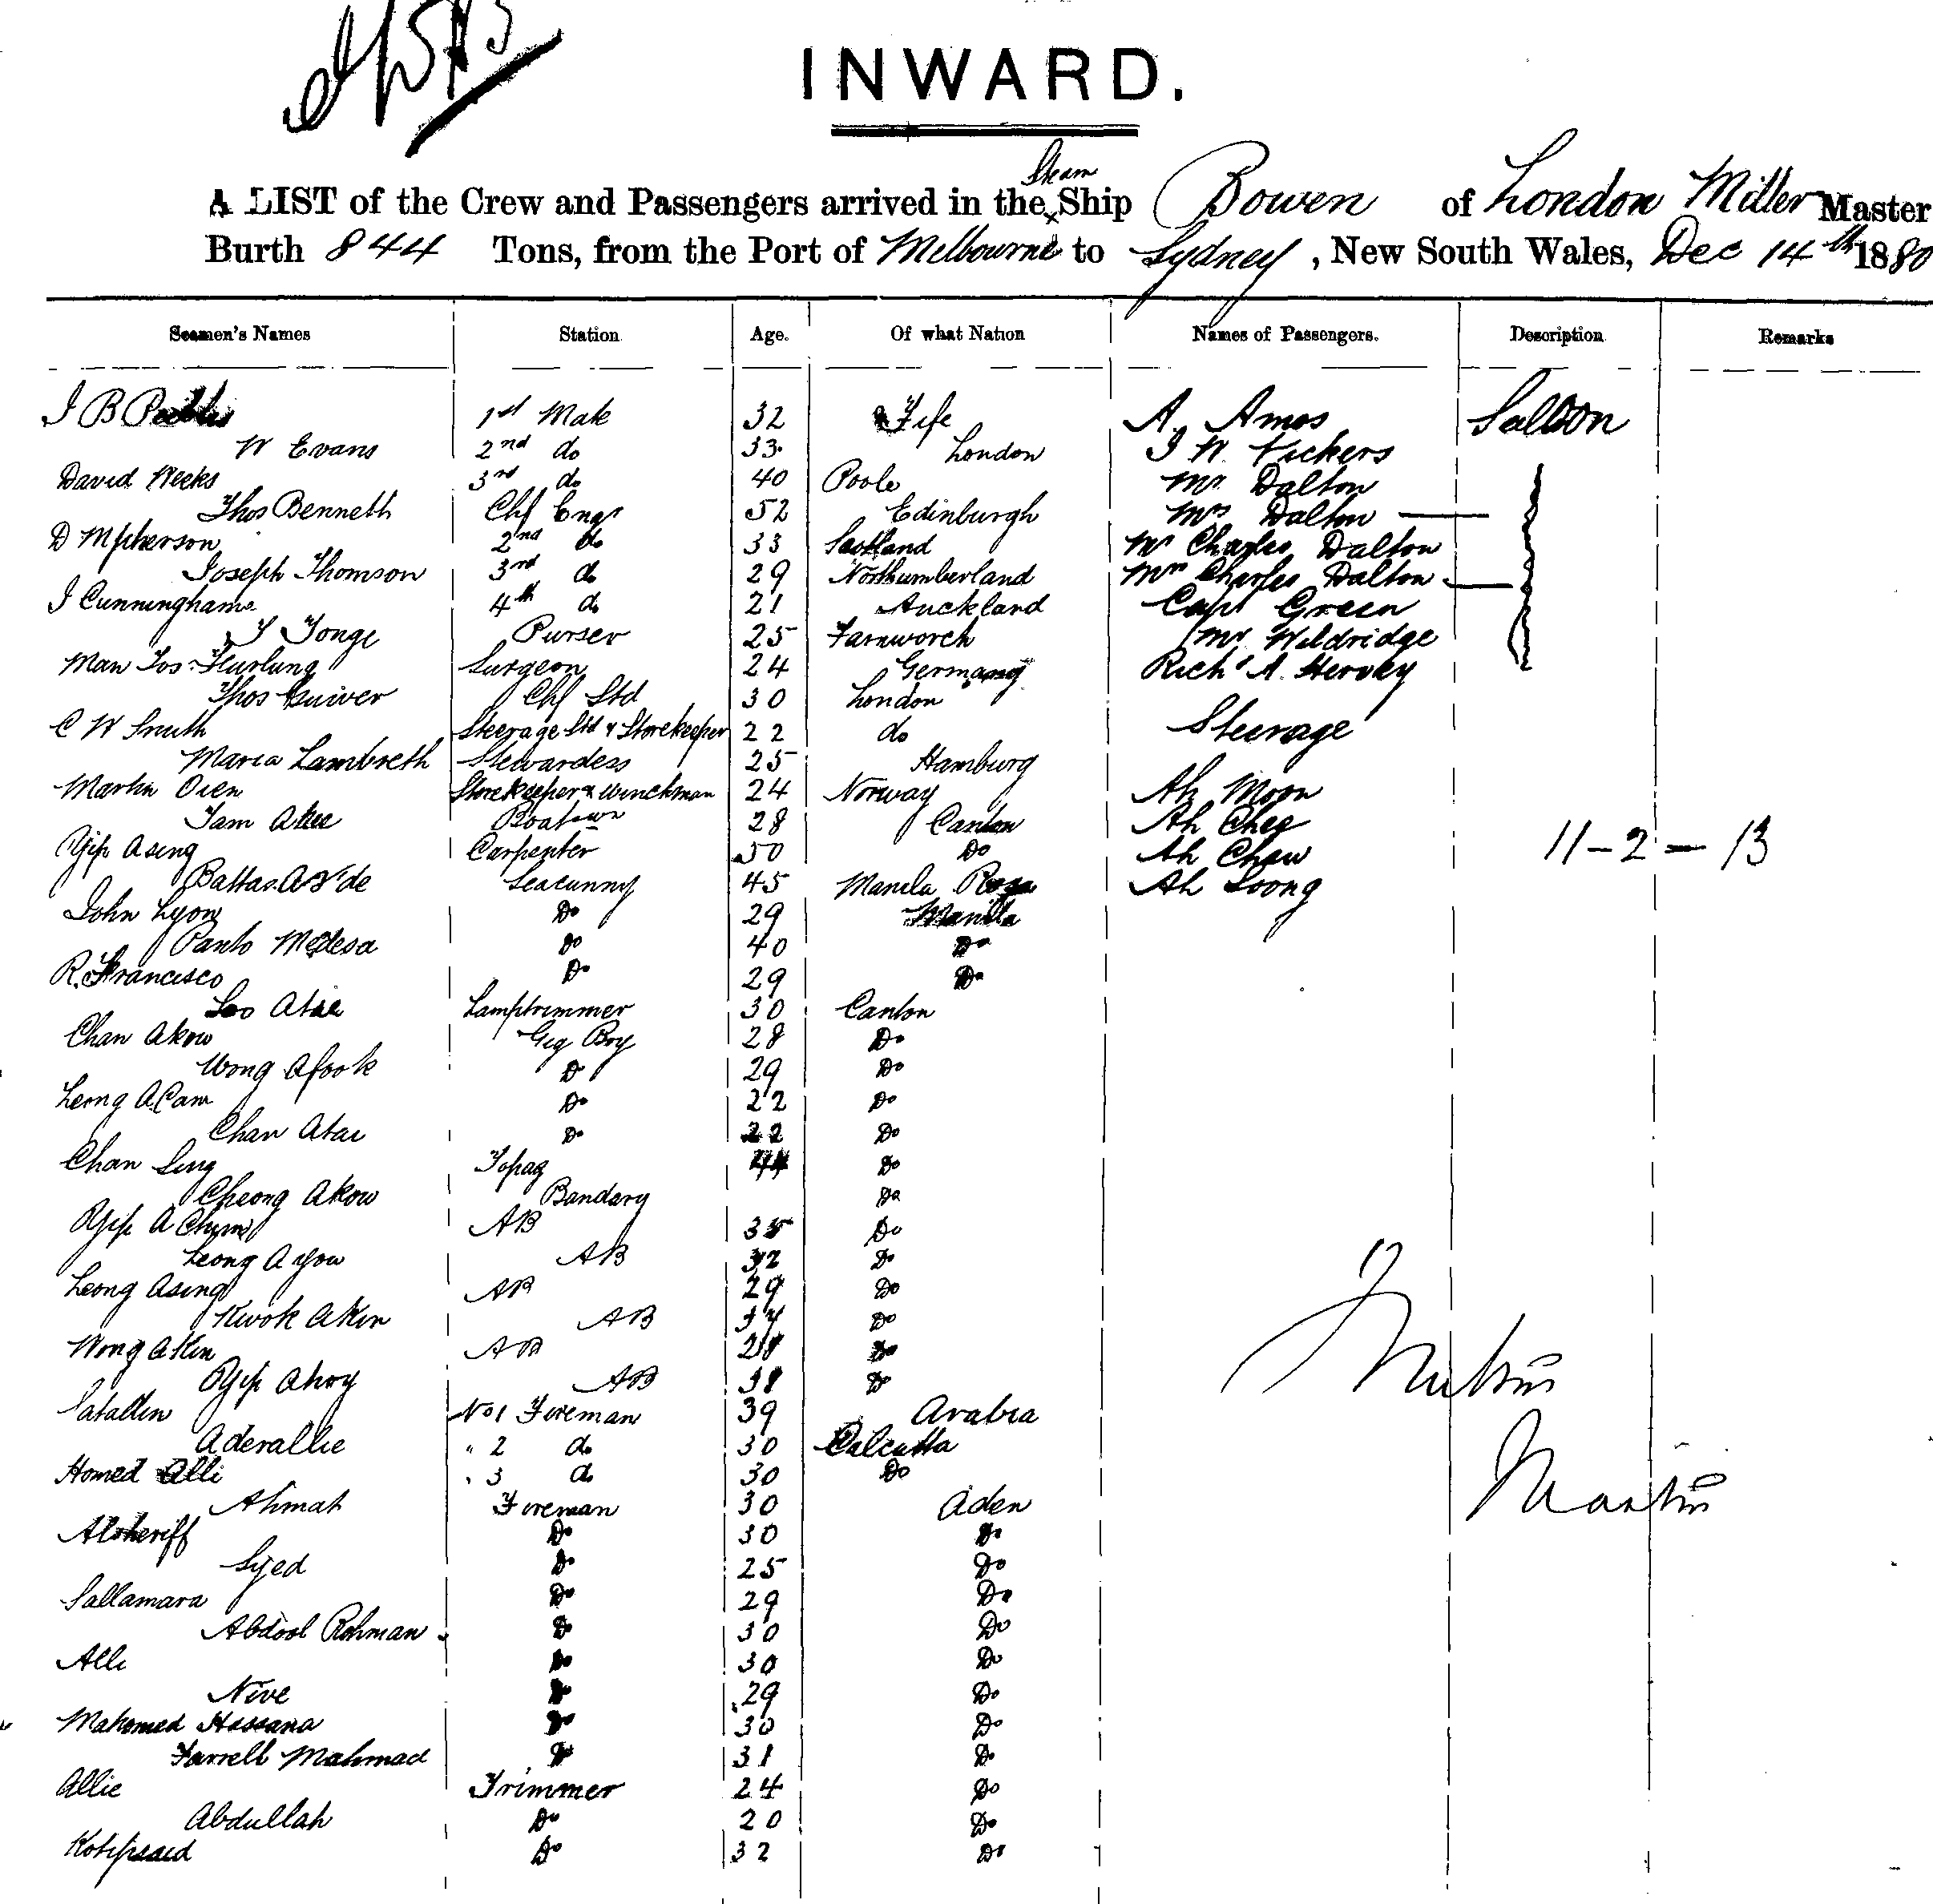 INWARD.
A LIST of the Crew and Passengers arrived in the Steam Ship Bowen of London Miller Master
Burth 844 Tons, from the Port of Melbourne to Sydney, New South Wales, Dec 14th 1880
Seamen's Names Station Age. Of what Nation Names of Passengers. Description Remarks
J B 1st Mate 32 Fife A. Amos Saloon
W Evans 2nd do 33 London J W Vickers
David Weeks 3rd do 40 Poole Mr Dalton
Thos Bennett Chf Engr 52 Edinburgh Mrs Dalton
D McPherson 2nd do 33 Scotland Mr Charles Dalton
Joseph Thomson 3rd do 29 Northumberland Mrs Charles Dalton
J Cunninghame 4th do 21 Auckland Capt Green
J Tonge Purser 25 Farnworth Mr Wildridge
Surgeon 24 Germany Richd A. Hervey
Thos Guiver Chf Std 30 London
C W Smith Steerage Std & Storekeeper 22 do Steerage
Maria Lambreth Stewardess 25 Hamburg
Martin Oien Storekeeper & Winchman 24 Norway Ah Moon
Tam Boatswn 28 Canton Ah Chee
Yip Asing Carpenter 50 Do Ah Chaw 11 - 2 - 13
Seacunny 45 Manila Ah Loong
John Lyon Do 29 Manila
Do 40 Do
R. Francisco Do 29 Do
Lamptrimmer 30 Canton
Chan Akow Gig Boy 28 Do
Wong Afook D 29 Do
Leong Do 22 Do
Chan Atai Do 22 Do
Chan Sing Topaz 44 Do
Cheong Akow Bandary Do
Yip A Chum AB 35 Do
Leong A You AB 32 Do
Leong Asing AB 29 Do
Kwok Akin AB Do
Wong AB 28 Do
Yip Ahoy AB 38 Do
No 1 Fireman 39 Arabia
Aderallie " 2 do 30 Calcutta
Homed Alli " 3 do 30 Do
Ahmat Fireman 30 Aden
Alsheriff Do 30 Do
Syed Do 25 Do
Sallamara Do 29 Do
Abdool Rohman Do 30 Do
Alli Do 30 Do
Nive Do 29 Do
Mahomed Hassana Do 30 Do
Farrell Mahmad Do 31 Do
Allie Trimmer 24 Do
Abdullah Do 20 Do
Do 32 Do